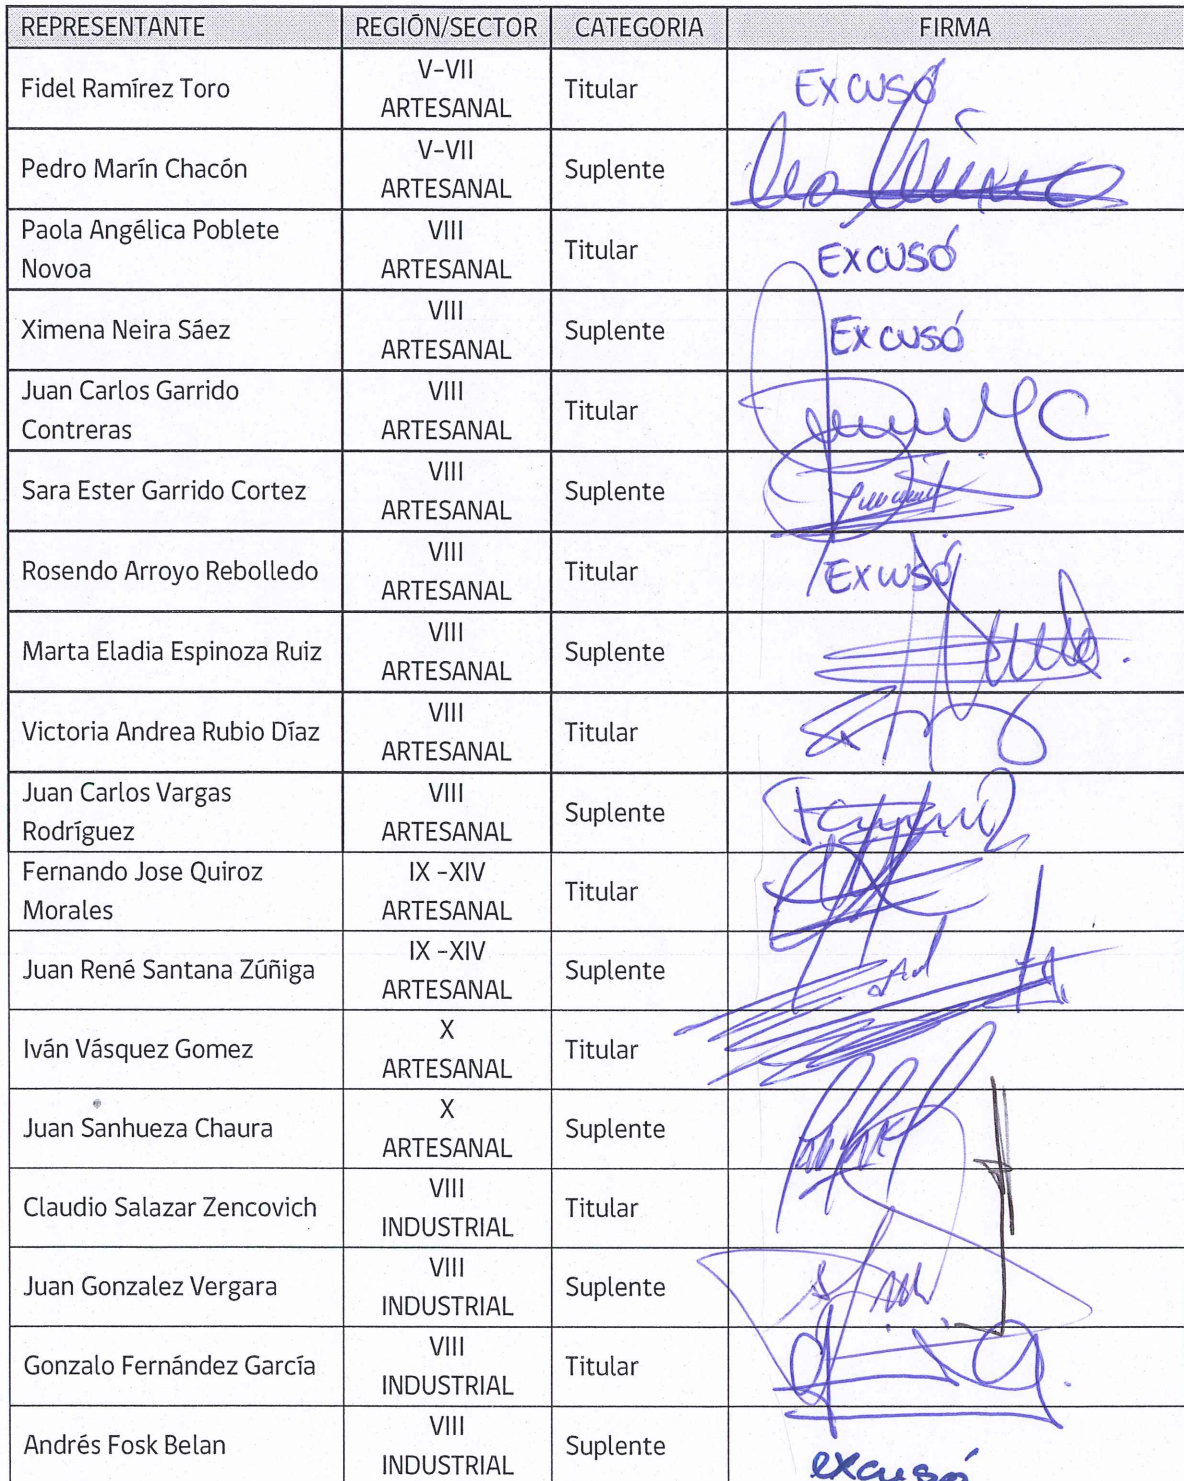 REPRESENTANTE REGIÓN/SECTOR CATEGORIA FIRMA
Fidel Ramírez Toro V-VII ARTESANAL Titular Excusó
Pedro Marín Chacón V-VII ARTESANAL Suplente
Paola Angélica Poblete Novoa VIII ARTESANAL Titular Excusó
Ximena Neira Sáez VIII ARTESANAL Suplente Excusó
Juan Carlos Garrido Contreras VIII ARTESANAL Titular
Sara Ester Garrido Cortez VIII ARTESANAL Suplente
Rosendo Arroyo Rebolledo VIII ARTESANAL Titular Excusó
Marta Eladia Espinoza Ruiz VIII ARTESANAL Suplente
Victoria Andrea Rubio Díaz VIII ARTESANAL Titular
Juan Carlos Vargas Rodríguez VIII ARTESANAL Suplente
Fernando Jose Quiroz Morales IX -XIV ARTESANAL Titular
Juan René Santana Zúñiga IX -XIV ARTESANAL Suplente
Iván Vásquez Gomez X ARTESANAL Titular
Juan Sanhueza Chaura X ARTESANAL Suplente
Claudio Salazar Zencovich VIII INDUSTRIAL Titular
Juan Gonzalez Vergara VIII INDUSTRIAL Suplente
Gonzalo Fernández García VIII INDUSTRIAL Titular
Andrés Fosk Belan VIII INDUSTRIAL Suplente excusó